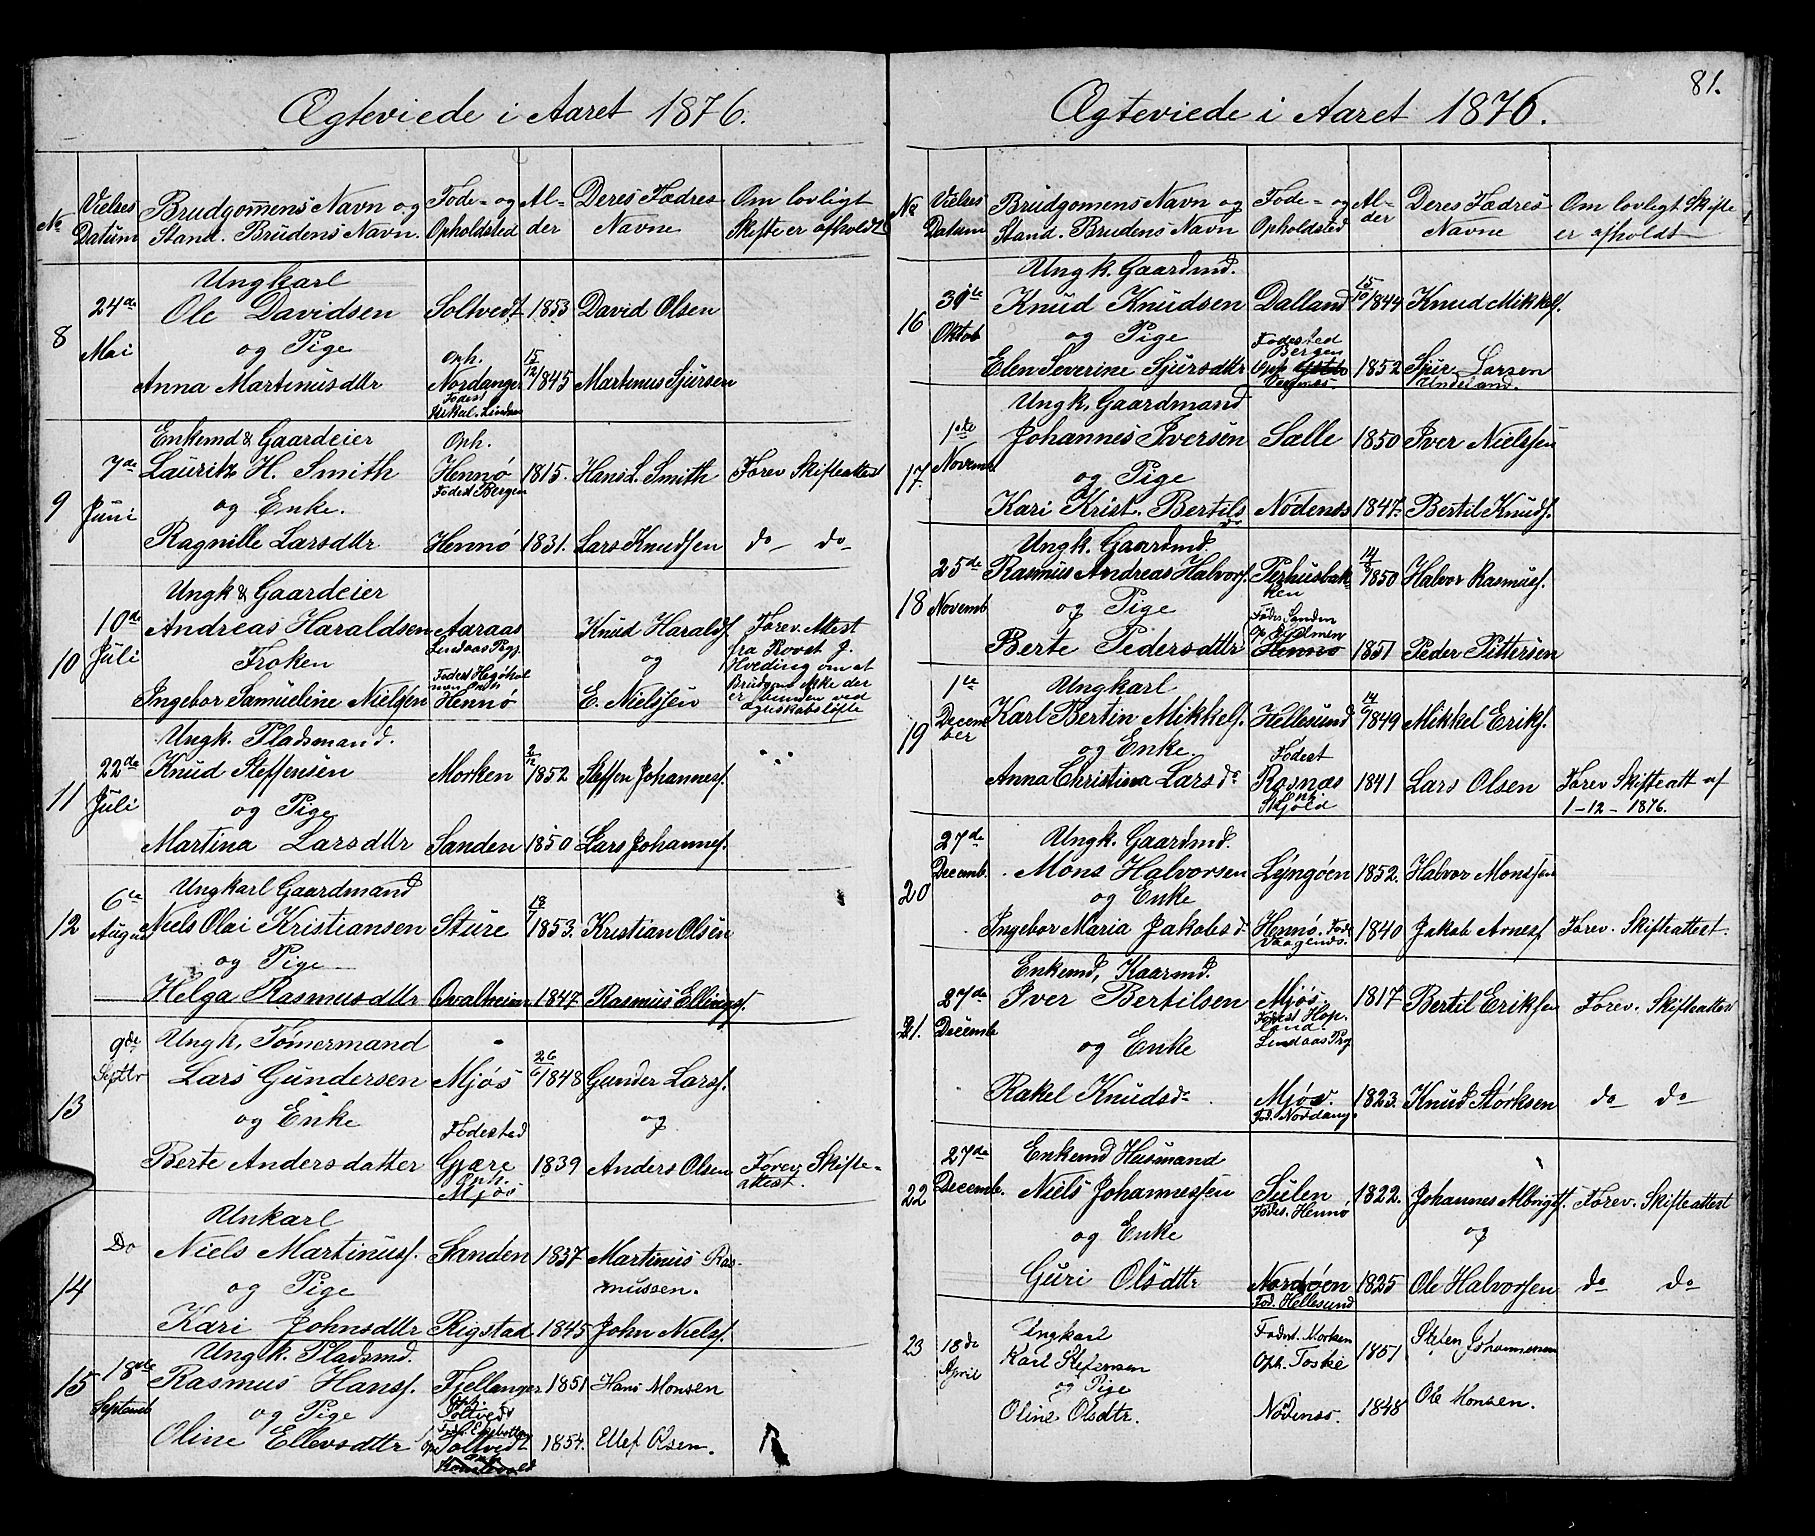 Ægteviede i Aaret 1876.
No
Vielses Datum
Brudgommens Navn og Stand. Brudens Navn.
Føde- og Opholdsted
Al- der
Deres Fædres Navne
Om lovligt Skifte er afholdt
8
24de Mai
Ungkarl
Ole Davidsen Soltvedt 1853 David Olsen
og Pige
Anna Martinusdtter Oph. Nordanger 15/12 1845 Martinus Sjursen
Fødest
9
7de Juni
Enkemd & Gaardeier
Lauritz H. Smith Oph. Hennø 1815. Hans L. Smith Forev Skifteattest
Fødest Bergen
og Enke.
Ragnille Larsdttr Hennø 1831. Lars Knudsen do do
10
10de Juli
Ungk & Gaardeier
Andreas Haraldsen Aaraas Knud Haralds. Forev. Attest
Lindaas Pgj. fra Provst J.
Frøken og Hveding om at
Brudgom ikke der
Ingebor Samueline Nielsen Hennø E. Nielsen er bunden ved
ægteskabsløfte
11
22de Juli
Ungk. Pladsmand.
Knud Steffensen Morken 2/12 1852 Steffen Johannes.
og Pige
Martina Larsdttr Sanden 1850 Lars Johannes.
12
6te August
Ungkarl Gaardmand
Niels Olai Kristiansen Sture 18/7 1853. Kristian Olsen
og Pige
Helga Rasmusdttr Qvalheim 1847. Rasmus Ellings.
13
9de Septbr
Ungk, Tømermand
Lars Gundersen Mjøs 26/6 1848 Gunder Lars.
og Enke og
Fødested
Berte Andersdatter Gjære 1839 Anders Olsen Forev. Skifte-
Oph. Mjøs attest.
14
Do
Unkarl
Niels Martinus. Sanden 1837 Martinus Ras-
og Pige mussen.
Kari Johnsdttr Rigstad 1845 John Niels.
15
18de Septemb
Ungk. Pladsmd.
Rasmus Hans. Fjellanger 1851 Hans Monsen
Oph. Soltvedt
og Pige
Oline Ellevsdttr Soltvedt 1854. Ellef Olsen.
81.
Ægteviede i Aaret 1876.
No
Vielses Datum
Brudgomens Navn og Stand. Brudens Navn
Føde- og Opholdsted
Al- der
Deres Fædres Navne
Om lovligt Skifte er afholdt
16
Oktob
Ungk. Gaardmd.
Knud Knudsen Dalland 15/10 1844 Knud Mikkels.
og Pige Fødested
Bergen
Elen Severine Sjursdttr Oph 1852 Larsen
Vognøs Undeland.
17.
1ste Novemb
Ungk, Gaardmand
Johannes Iversen Sælle 1850 Iver Nielssen
og Pige
Kari Krist. Bertilsdr Nødenes 1847. Bertil Knuds.
18
25de Novemb
Ungk. Gaardmd.
Rasmus Andreas Halvors. Perhusbakken 1850 Halvor Rasmus.
og Pige Fødes. Sanden
Berte Pedersdttr Hennø 1851 Peder Pettersen
19
1te December
Ungkarl
Karl Bertin Mikkels. Hellesund 14/9 1849 Mikkel Eriks.
og Enke Fødest
Anna Christina Larsdr Rasnæs 1841 Lars Olsen Forev Skifteatt af
Skjold 1-12-1876.
20
27de Decemb.
Ungk. Gaardmd.
Mons Halvorsen Lyngøen 1852. Halvor Monssen
og Enke
Ingebor Maria Jakobsd. Hennø. Fød. 1840 Jakob Arnes. Forev. Skifteattest.
Vaagenes.
21.
27de Decemb.
Enkemd, Kaarmd.
Iver Bertilsen Mjøs. 1817 Bertil Eriksen Forev. Skifteattest
Fødest Hopland.
og Enke Lindaas Prg
Rakel Knudsdr Mjøs. 1823. Knud Størksen do do
Fød. Nordang.
22
27de Decemb.
Enkemd Husmand
Niels Johannessen Sulen 1822. Johannes Albrigts. Forev. Skifteattest
Fødes. Hennø
og Enke og
Guri Olsdttr Nordøen 1825 Ole Halvorsen do do
Fød. Hellesund
23
18de April
Ungkarl Fødest. Morken
Karl Stefensen Oph. Toske 1851 Stefen Johannesen
og Pige
Oline Olsdtr. Nødenes. 1848 Ole Monsen.